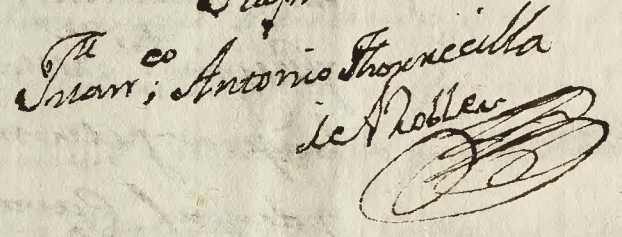 Fran^co Antonio Thorrecilla
de Robles